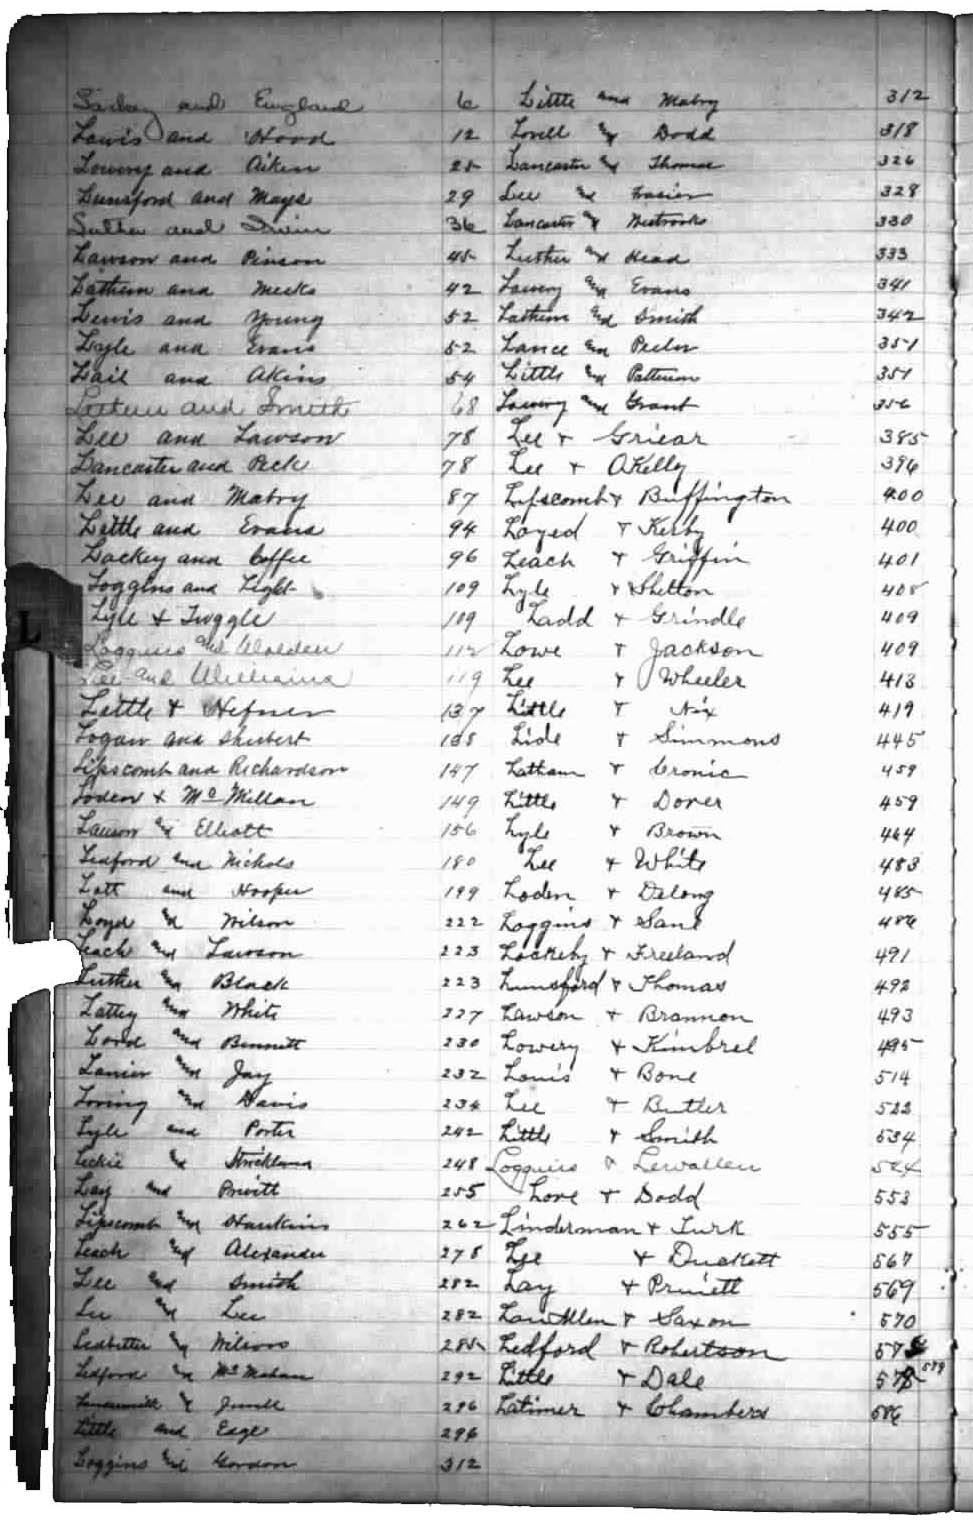 and England 6
Lewis and Hood 12
Lowery and Aiken 25
Lunsford and Mays 29
Luther and Irvin 36
Lawson and Pinson 45
Lathem and Meeks 42
Lewis and Young 52
Lyle and Evans 52
Lail and Akins 54
Lathem and Smith 68
Lee and Lawson 78
Lancaster and Peck 78
Lee and Mabry 87
Little and Evans 94
Lackey and Coffee 96
Loggins and Light 109
L
Lyle & Tuggle 109
Loggins and Walden 112
Lee and Williams 119
Little & Hefner 137
Logan and Shubert 138
Lipscomb and Richardson 147
Loden & McMillan 149
Lawson and Elliott 156
Ledford and Nichols 180
Lott and Hooper 199
Loyd and Wilson 222
Leach and Lawson 223
Luther and Black 223
Lattey and White 227
Lord and Bennett 230
Lanier and Jay 232
Loring and Davis 234
Lyle and Porter 242
Leckie and Strickland 248
Lay and Pruitt 255
Lipscomb and Hawkins 262
Leach and Alexander 278
Lee and Smith 282
Lee and Lee 282
Ledbetter and Wilson 285
Ledford and McMahan 292
and 296
Little and Edge 296
Loggins and Gordon 312
Little and Mabry 312
Lovell and Dodd 318
Lancaster and Thomas 326
Lee and Frasier 328
Lancaster & Westbrooks 330
Luther and Head 333
Lowery and Evans 341
Lathem and Smith 342
Lance and Peeler 351
Little and Patterson 351
Lowery and Grant 356
Lee & Griear 385
Lee & OKelly 396
Lipscomb & Buffington 400
Loyed & Kerby 400
Leach & Griffin 401
Lyle & Shelton 408
Ladd & Grindle 409
Lowe & Jackson 409
Lee & Wheeler 413
Little & Nix 419
Lide & Simmons 445
Latham & Cronic 459
Little & Dover 459
Lyle & Brown 464
Lee & White 483
Loden & Delong 485
Loggins & Sane 486
Lockeby & Freeland 491
Lunsford & Thomas 492
Lawson & Brannon 493
Lowery & Kimbrel 495
Louis & Bone 514
Lee & Butler 522
Little & Smith 534
Loggins & Lewallen
Love & Dodd 553
Linderman & Turk 555
Lee & Duckett 567
Lay & Pruiett 569
& Saxon 570
Ledford & Robertson
Little & Dale 579
Latimer & Chambers 586